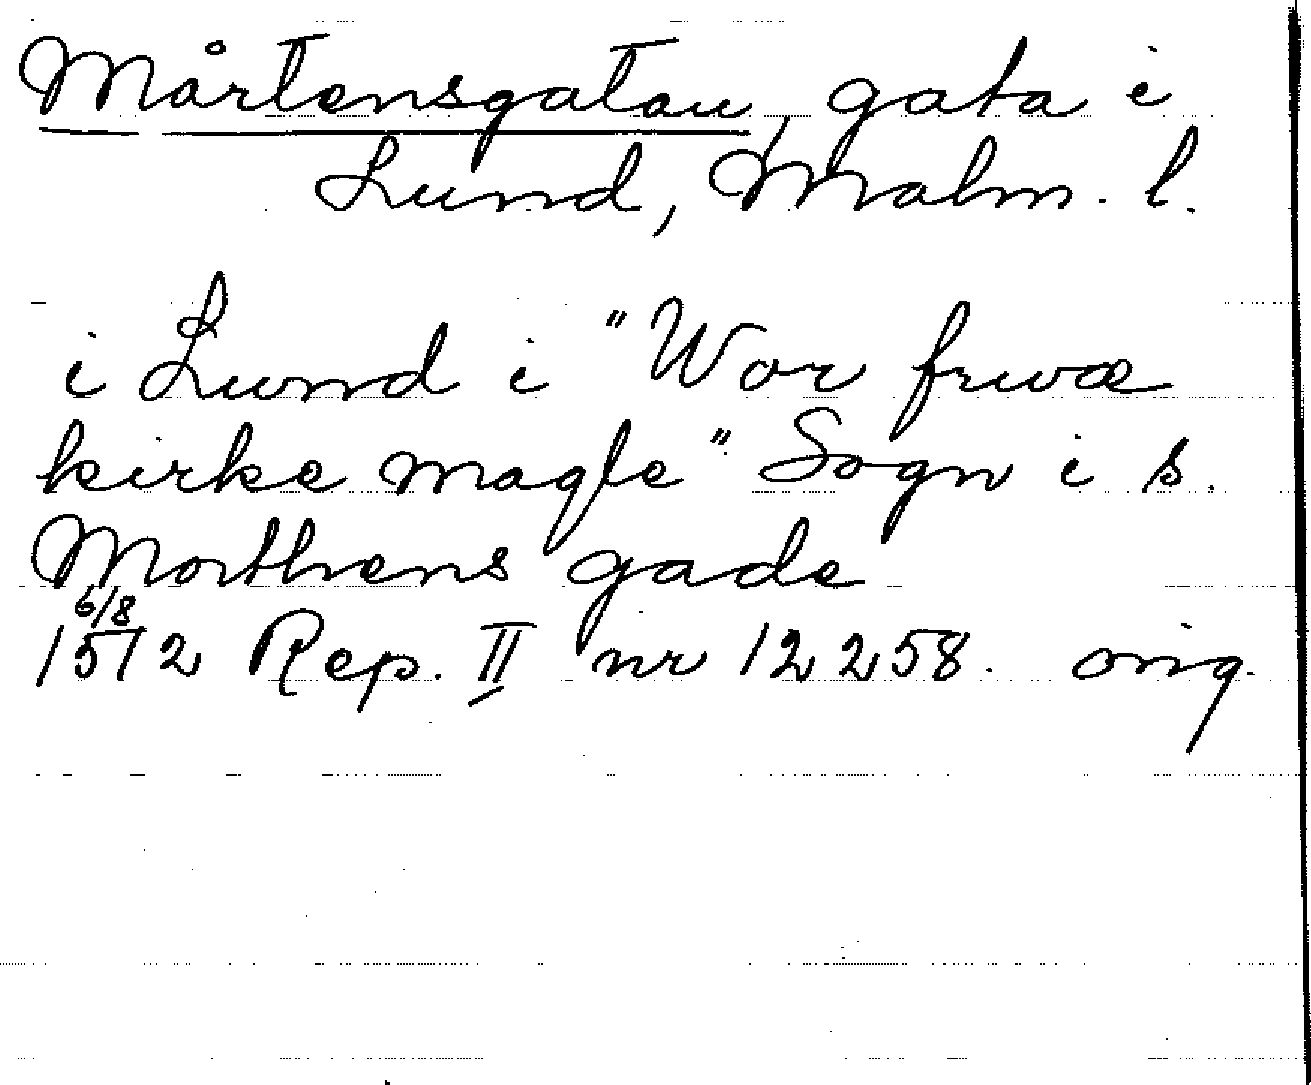 Mårtensgatan, gata i
Lund, Malm. l.
i Lund i "Wor frwæ
kirke magle" Sogn i s.
Morthens gade
6/8
1512 Rep. II nr 12258. orig.